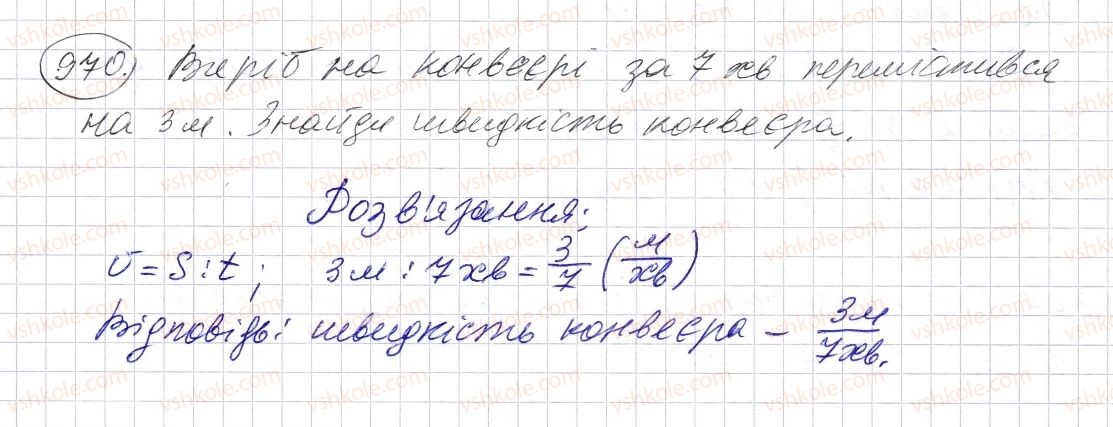 970. Виріб на конвеєрі за 7 хв перемістився
на 3 м. Знайди швидкість конвеєра.
Розв'язання:
v = S : t ; 3 м : 7 хв = 3/7 (м/хв)
Відповідь: швидкість конвеєра – 3м/7хв.